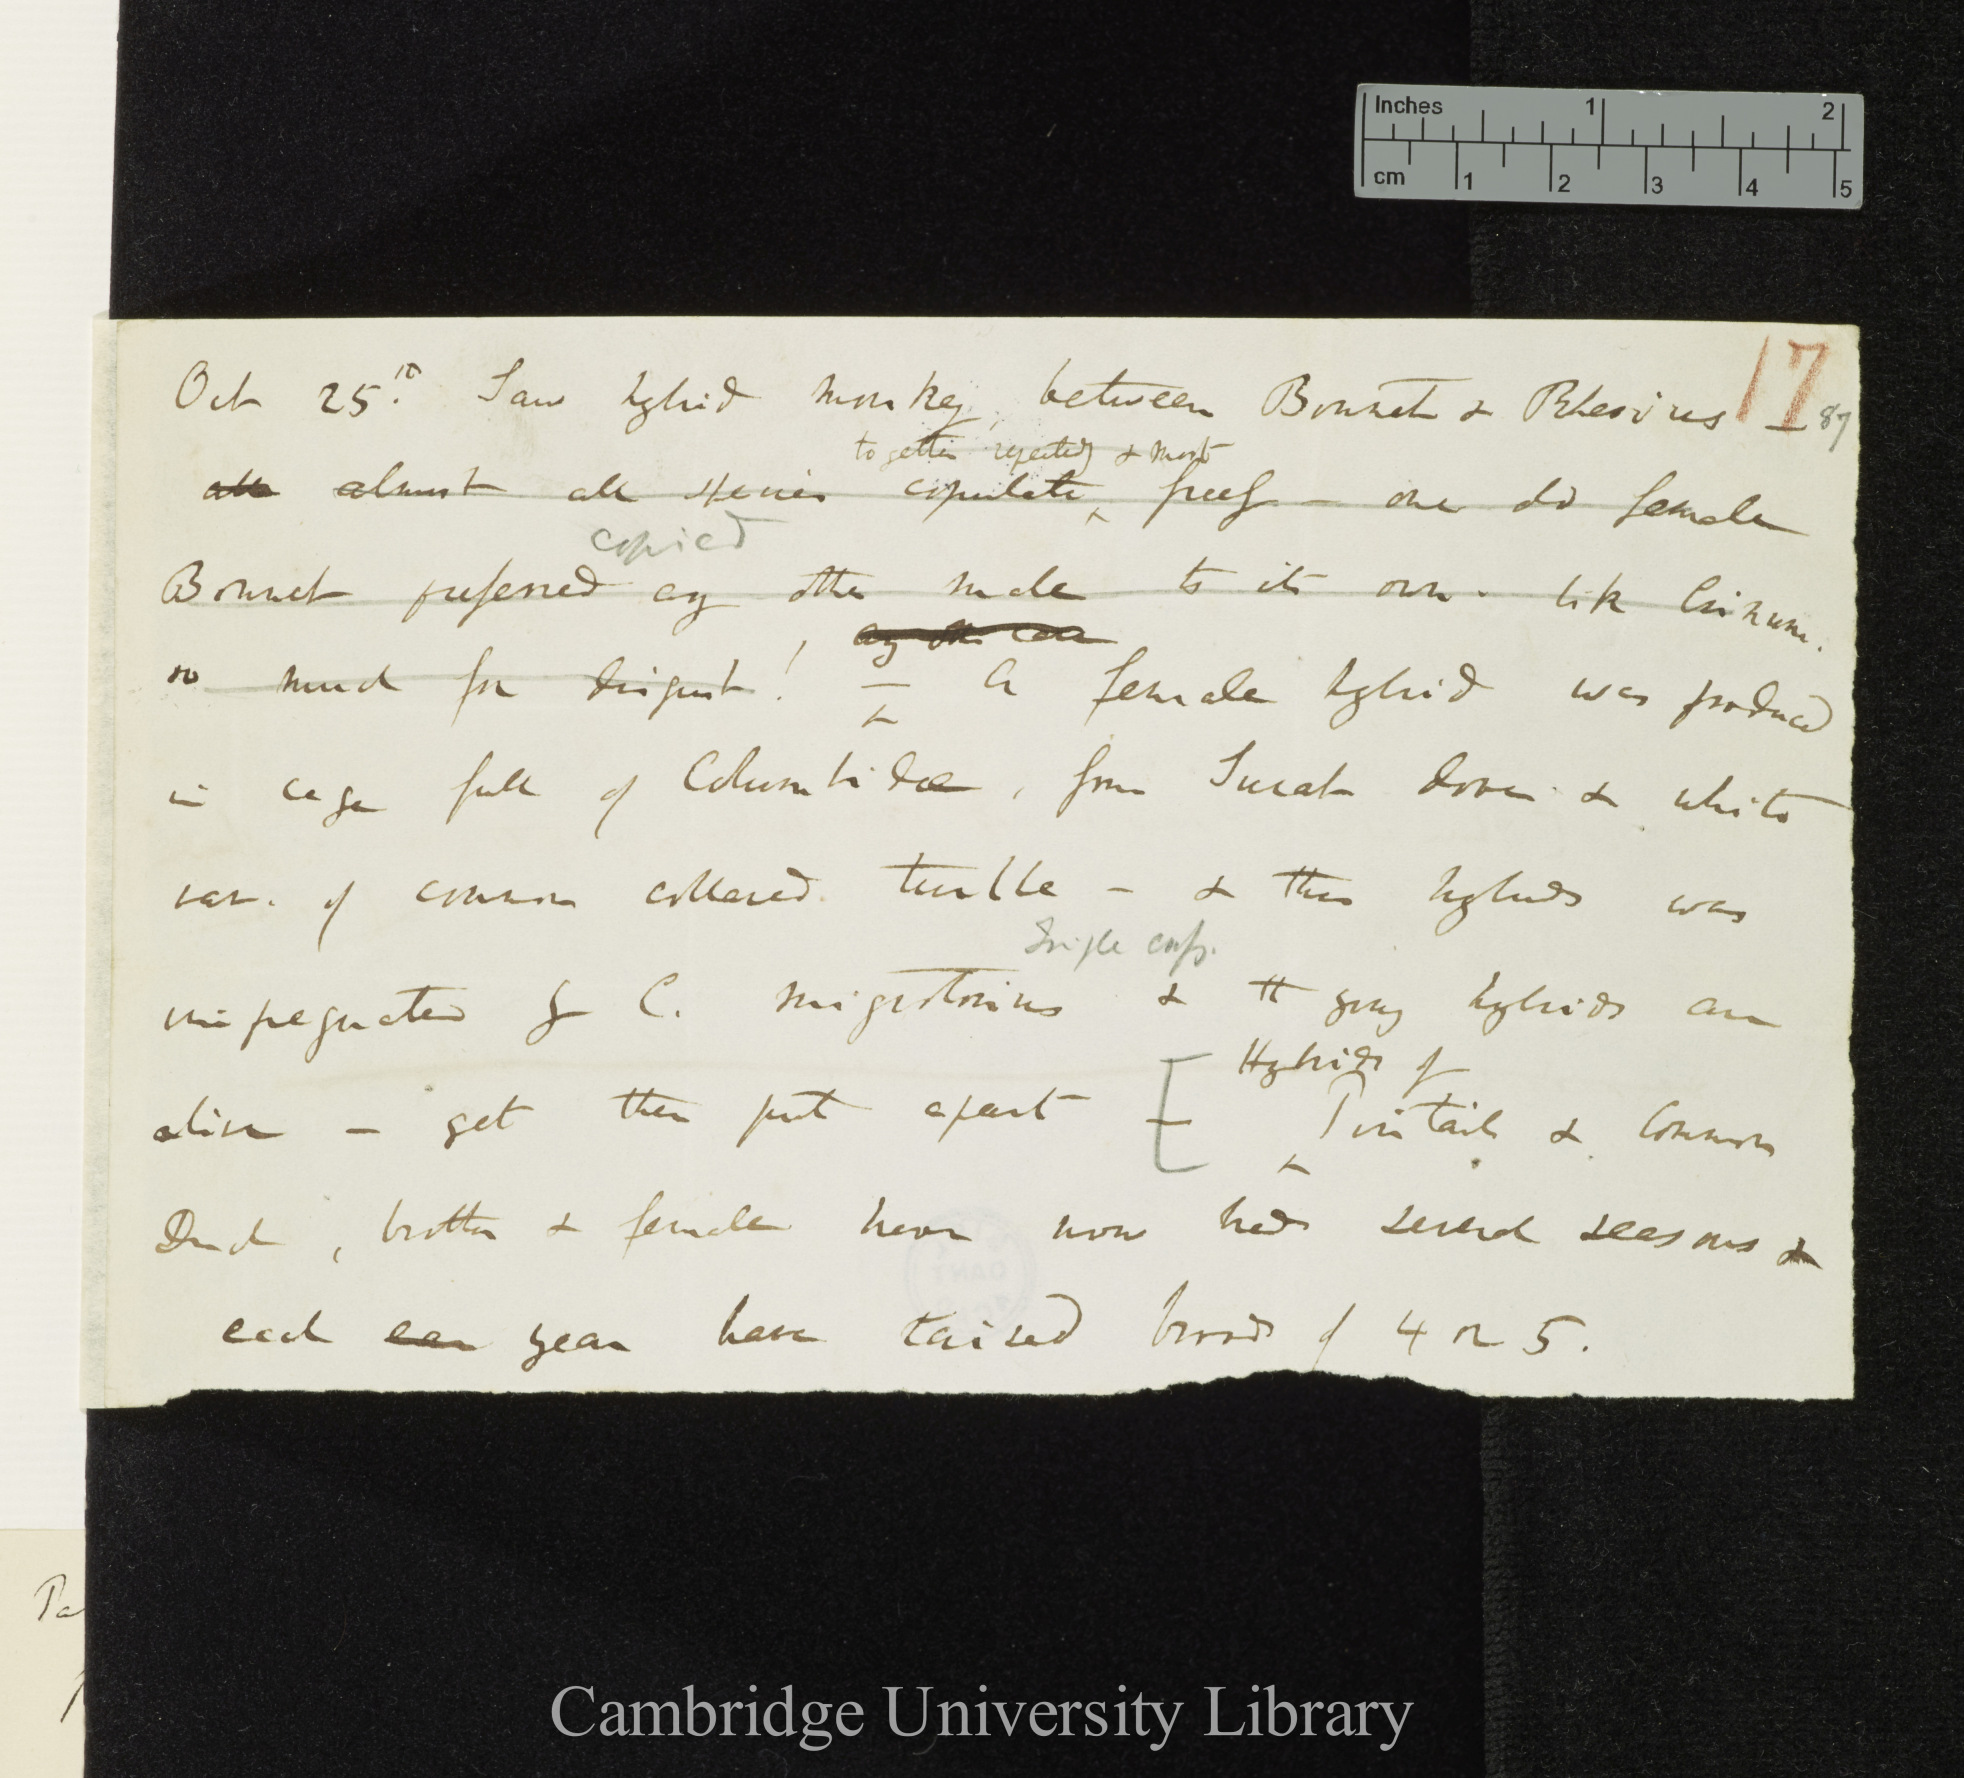 Inches 1 2
cm 1 2 3 4 5
17
87
Oct 25th. Saw hybrid monkey, between Bonnet & Rhesius —
together repeatedly & most
all almost all species copulate freely — one old female
copied
Bonnet preferred any other male to its own. like Crinum.
any other case
so much for disgust! — A female hybrid was produced
in cage full of Columbidae, from Surat dove & white
var. of common collared turtle — & this hybrids was
Single cups.
impregnated by C. migratorius & the young hybrids are
Hybrids of
alive — get them put apart — [ Pintail & Common
Duck, brother & female have now had several seasons &
each ear year have raised broods of 4 or 5.
Pa
Cambridge University Library